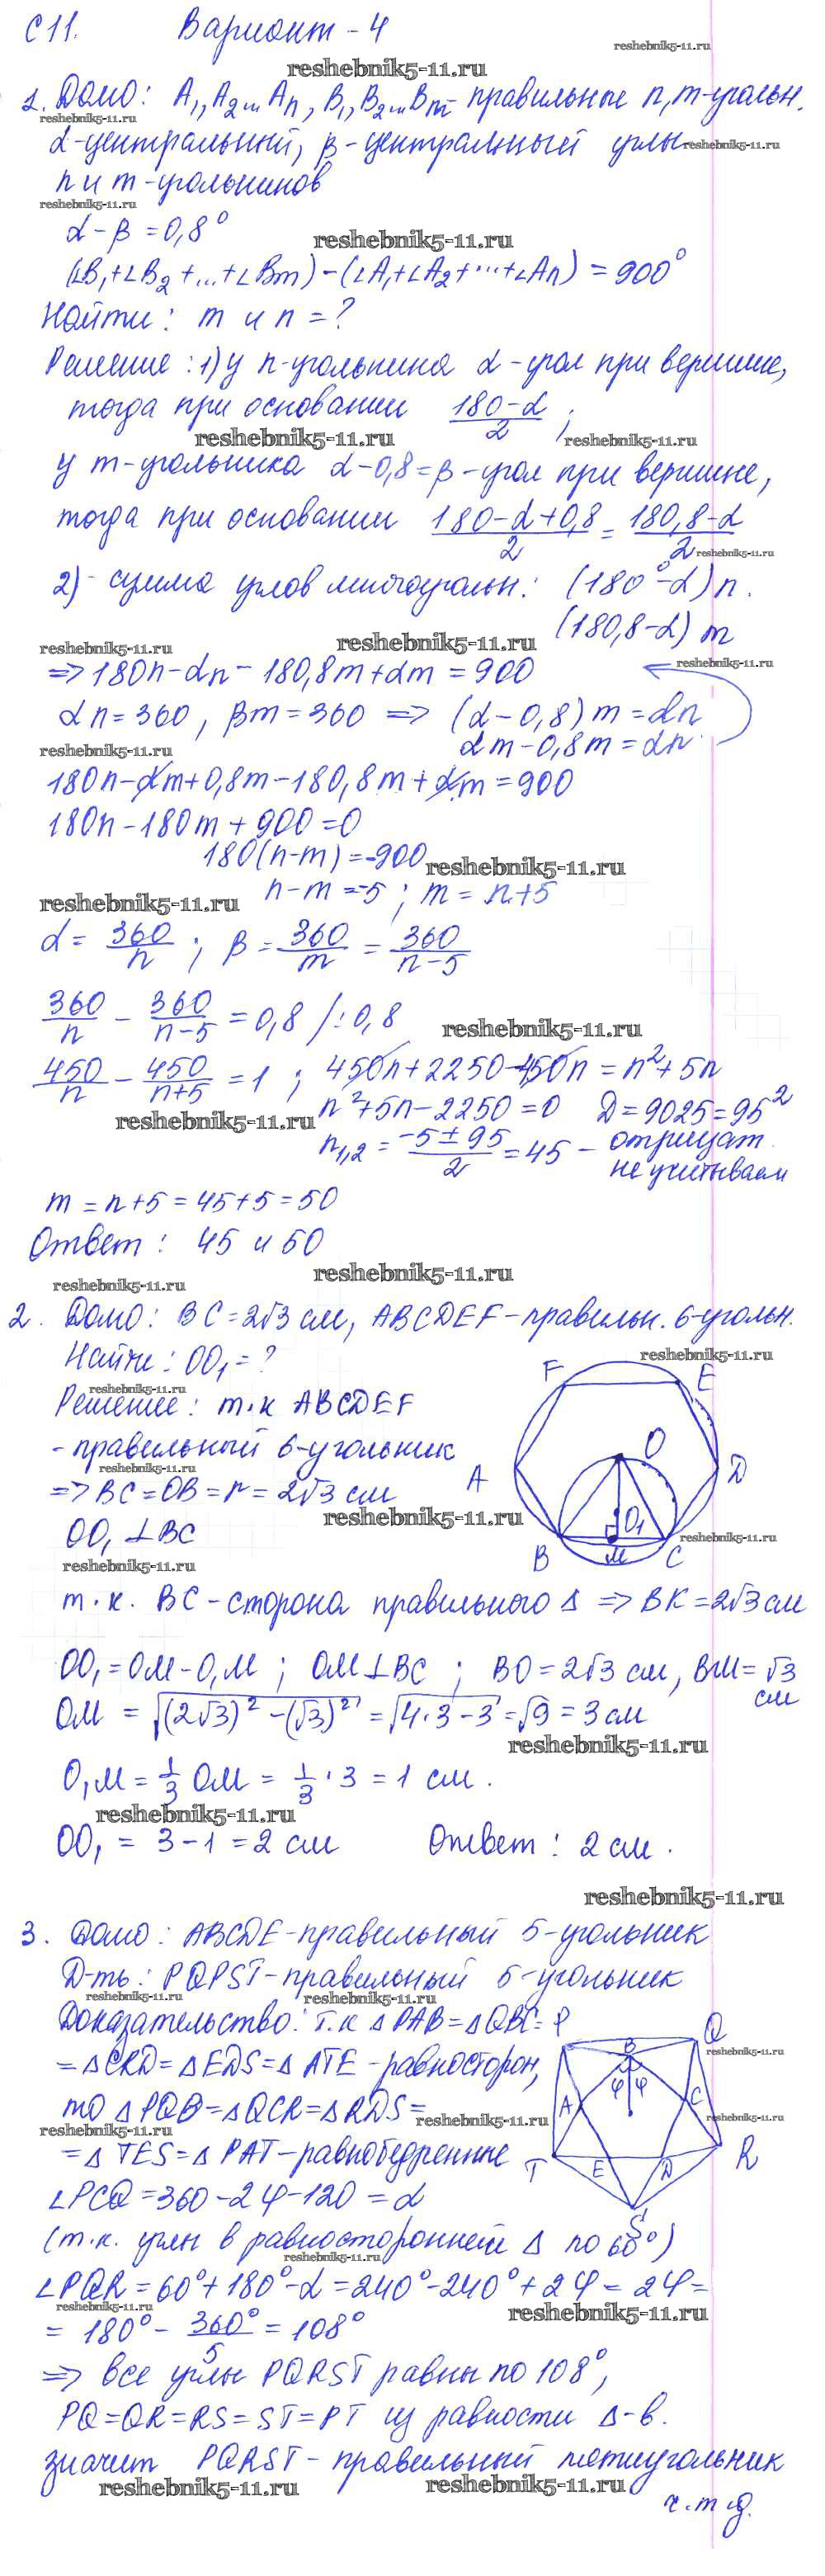 С 11. Вариант - 4
reshebnik5-11.ru
reshebnik5-11.ru
1. Дано: A₁, A₂ ... Aₙ, B₁, B₂ ... Bₘ - правильные n, m-угольн.
reshebnik5-11.ru
α-центральный, β-центральный углы
reshebnik5-11.ru
n и m-угольников
reshebnik5-11.ru
α - β = 0,8°
reshebnik5-11.ru
(∠B₁ + ∠B₂ + ... + ∠Bm) - (∠A₁ + ∠A₂ + ... + ∠An) = 900°
Найти: m и n = ?
Решение: 1) У n-угольника α - угол при вершине,
тогда при основании (180-α)/2 ;
reshebnik5-11.ru
reshebnik5-11.ru
У m-угольника α - 0,8 = β - угол при вершине,
тогда при основании (180-α+0,8)/2 = (180,8-α)/2
reshebnik5-11.ru
2) - сумма углов многоугольн: (180°-α)n.
(180,8-α)m
reshebnik5-11.ru
reshebnik5-11.ru
reshebnik5-11.ru
=> 180n - αn - 180,8m + αm = 900
αn = 360, βm = 360 => (α-0,8)m = αn
reshebnik5-11.ru
αm - 0,8m = αn
180n - αm + 0,8m - 180,8m + αm = 900
180n - 180m + 900 = 0
180(n-m) = -900
reshebnik5-11.ru
reshebnik5-11.ru
n - m = -5 ; m = n+5
α = 360/n ; β = 360/m = 360/(n-5)
360/n - 360/(n-5) = 0,8 /: 0,8
reshebnik5-11.ru
450/n - 450/(n+5) = 1 ; 450n + 2250 - 450n = n² + 5n
reshebnik5-11.ru
n² + 5n - 2250 = 0 D = 9025 = 95²
n₁,₂ = (-5 ± 95)/2 = 45 - отрицат.
не учитываем
m = n+5 = 45+5 = 50
Ответ: 45 и 50
reshebnik5-11.ru
reshebnik5-11.ru
2. Дано: BC = 2√3 см, ABCDEF - правильн. 6-угольн.
Найти: OO₁ = ?
reshebnik5-11.ru
reshebnik5-11.ru
Решение: т.к ABCDEF
- правильный 6-угольник
reshebnik5-11.ru
=> BC = OB = r = 2√3 см
reshebnik5-11.ru
OO₁ ⊥ BC
reshebnik5-11.ru
reshebnik5-11.ru
F
E
O
A
D
O₁
B
M
C
т.к. BC - сторона правильного Δ => BK = 2√3 см
OO₁ = OM - O₁M ; OM ⊥ BC ; BO = 2√3 см, BM = √3
см
OM = √((2√3)² - (√3)²) = √(4·3-3) = √9 = 3 см
reshebnik5-11.ru
O₁M = 1/3 OM = 1/3 · 3 = 1 см.
reshebnik5-11.ru
OO₁ = 3 - 1 = 2 см Ответ: 2 см.
reshebnik5-11.ru
3. Дано: ABCDE - правильный 5-угольник
Д-ть: PQPST - правильный 5-угольник
reshebnik5-11.ru
reshebnik5-11.ru
Доказательство: т.к Δ PAB = Δ QBC =
= Δ CRD = Δ EDS = Δ ATE - равносторон,
reshebnik5-11.ru
то Δ PQB = Δ QCR = Δ RDS =
reshebnik5-11.ru
reshebnik5-11.ru
reshebnik5-11.ru
= Δ TES = Δ PAT - равнобедренные
P
Q
B
φ
φ
A
C
T
E
D
R
S
∠PCQ = 360 - 2φ - 120 = α
(т.к. углы в равностороннем Δ по 60°)
reshebnik5-11.ru
∠PQR = 60° + 180° - α = 240° - 240° + 2φ = 2φ =
reshebnik5-11.ru
reshebnik5-11.ru
= 180° - 360°/5 = 108°
=> все углы PQRST равны по 108°,
PQ = QR = RS = ST = PT из равности Δ-в.
значит PQRST - правильный пятиугольник
reshebnik5-11.ru
reshebnik5-11.ru
ч.т.д.